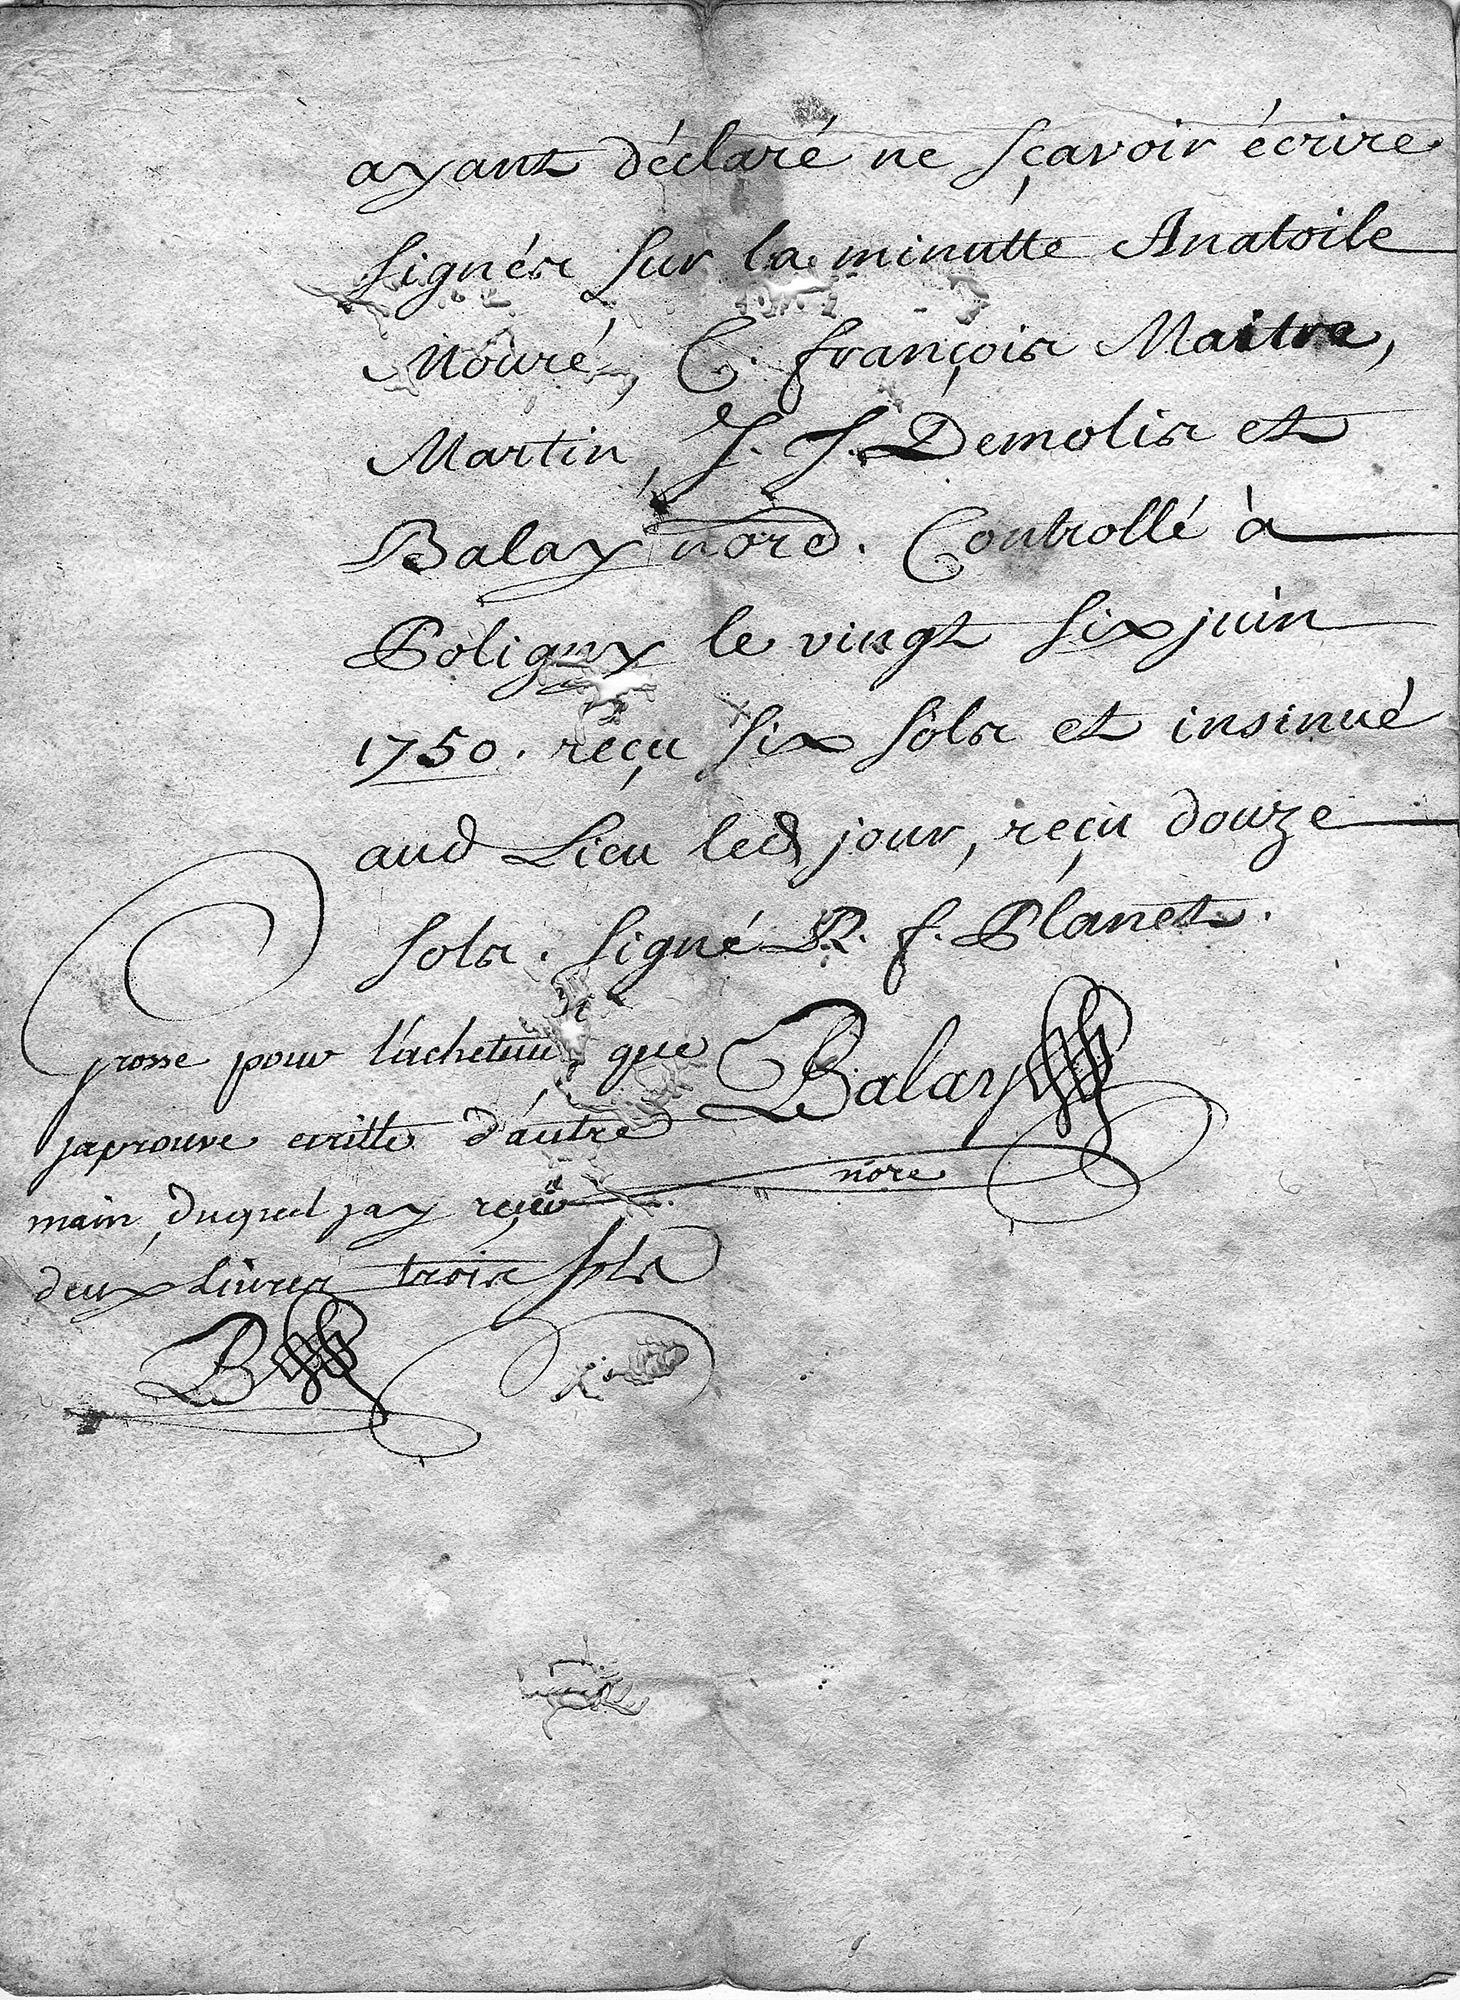 ayant déclaré ne sçavoir écrire
signés sur la minutte Anatoile
Mouré, C. françois Maitre,
Martin, J. J. Demolis et
Balay nore. Controllé à
Poligny le vingt six juin
1750. reçu six sols et insinué
aud Lieu led jour, reçu douze
sols. signé P. f. Planet.
grosse pour l'acheteur que
japrouve evritte d'autre
main duquel jay reçu
deux Livres trois sols
Balay
nore
B